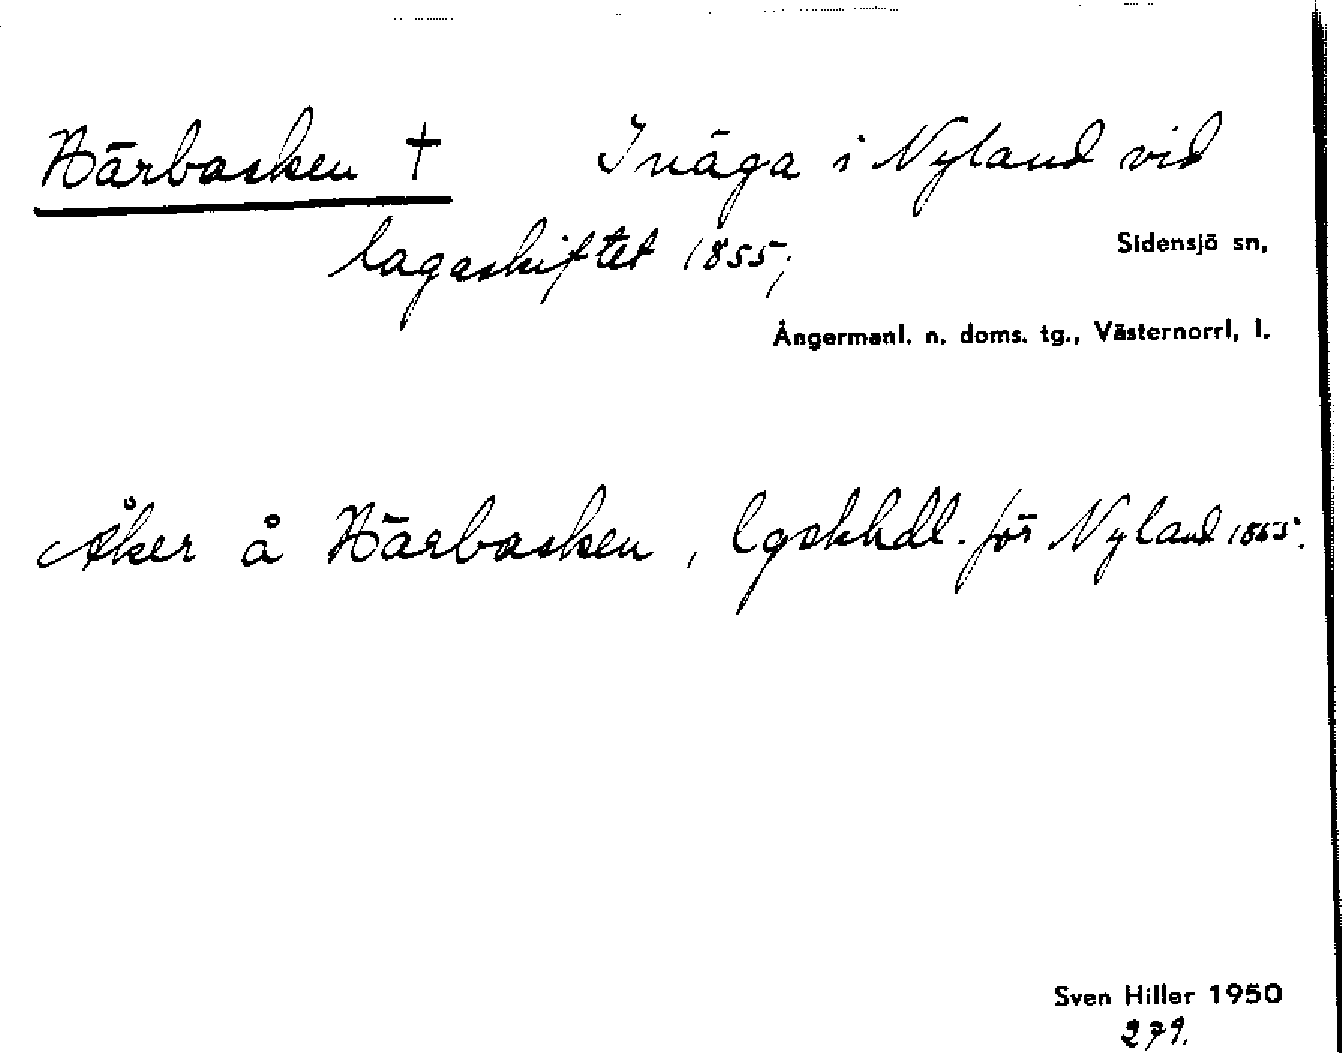 Härbasken † Inäga i Nyland vid
lagaskiftet 1855;
Sidensjö sn,
Ångermanl. n. doms. tg., Västernorrl, l.
Åker å Härbasken, lgskhdl. för Nyland 1855.
Sven Hiller 1950
279.